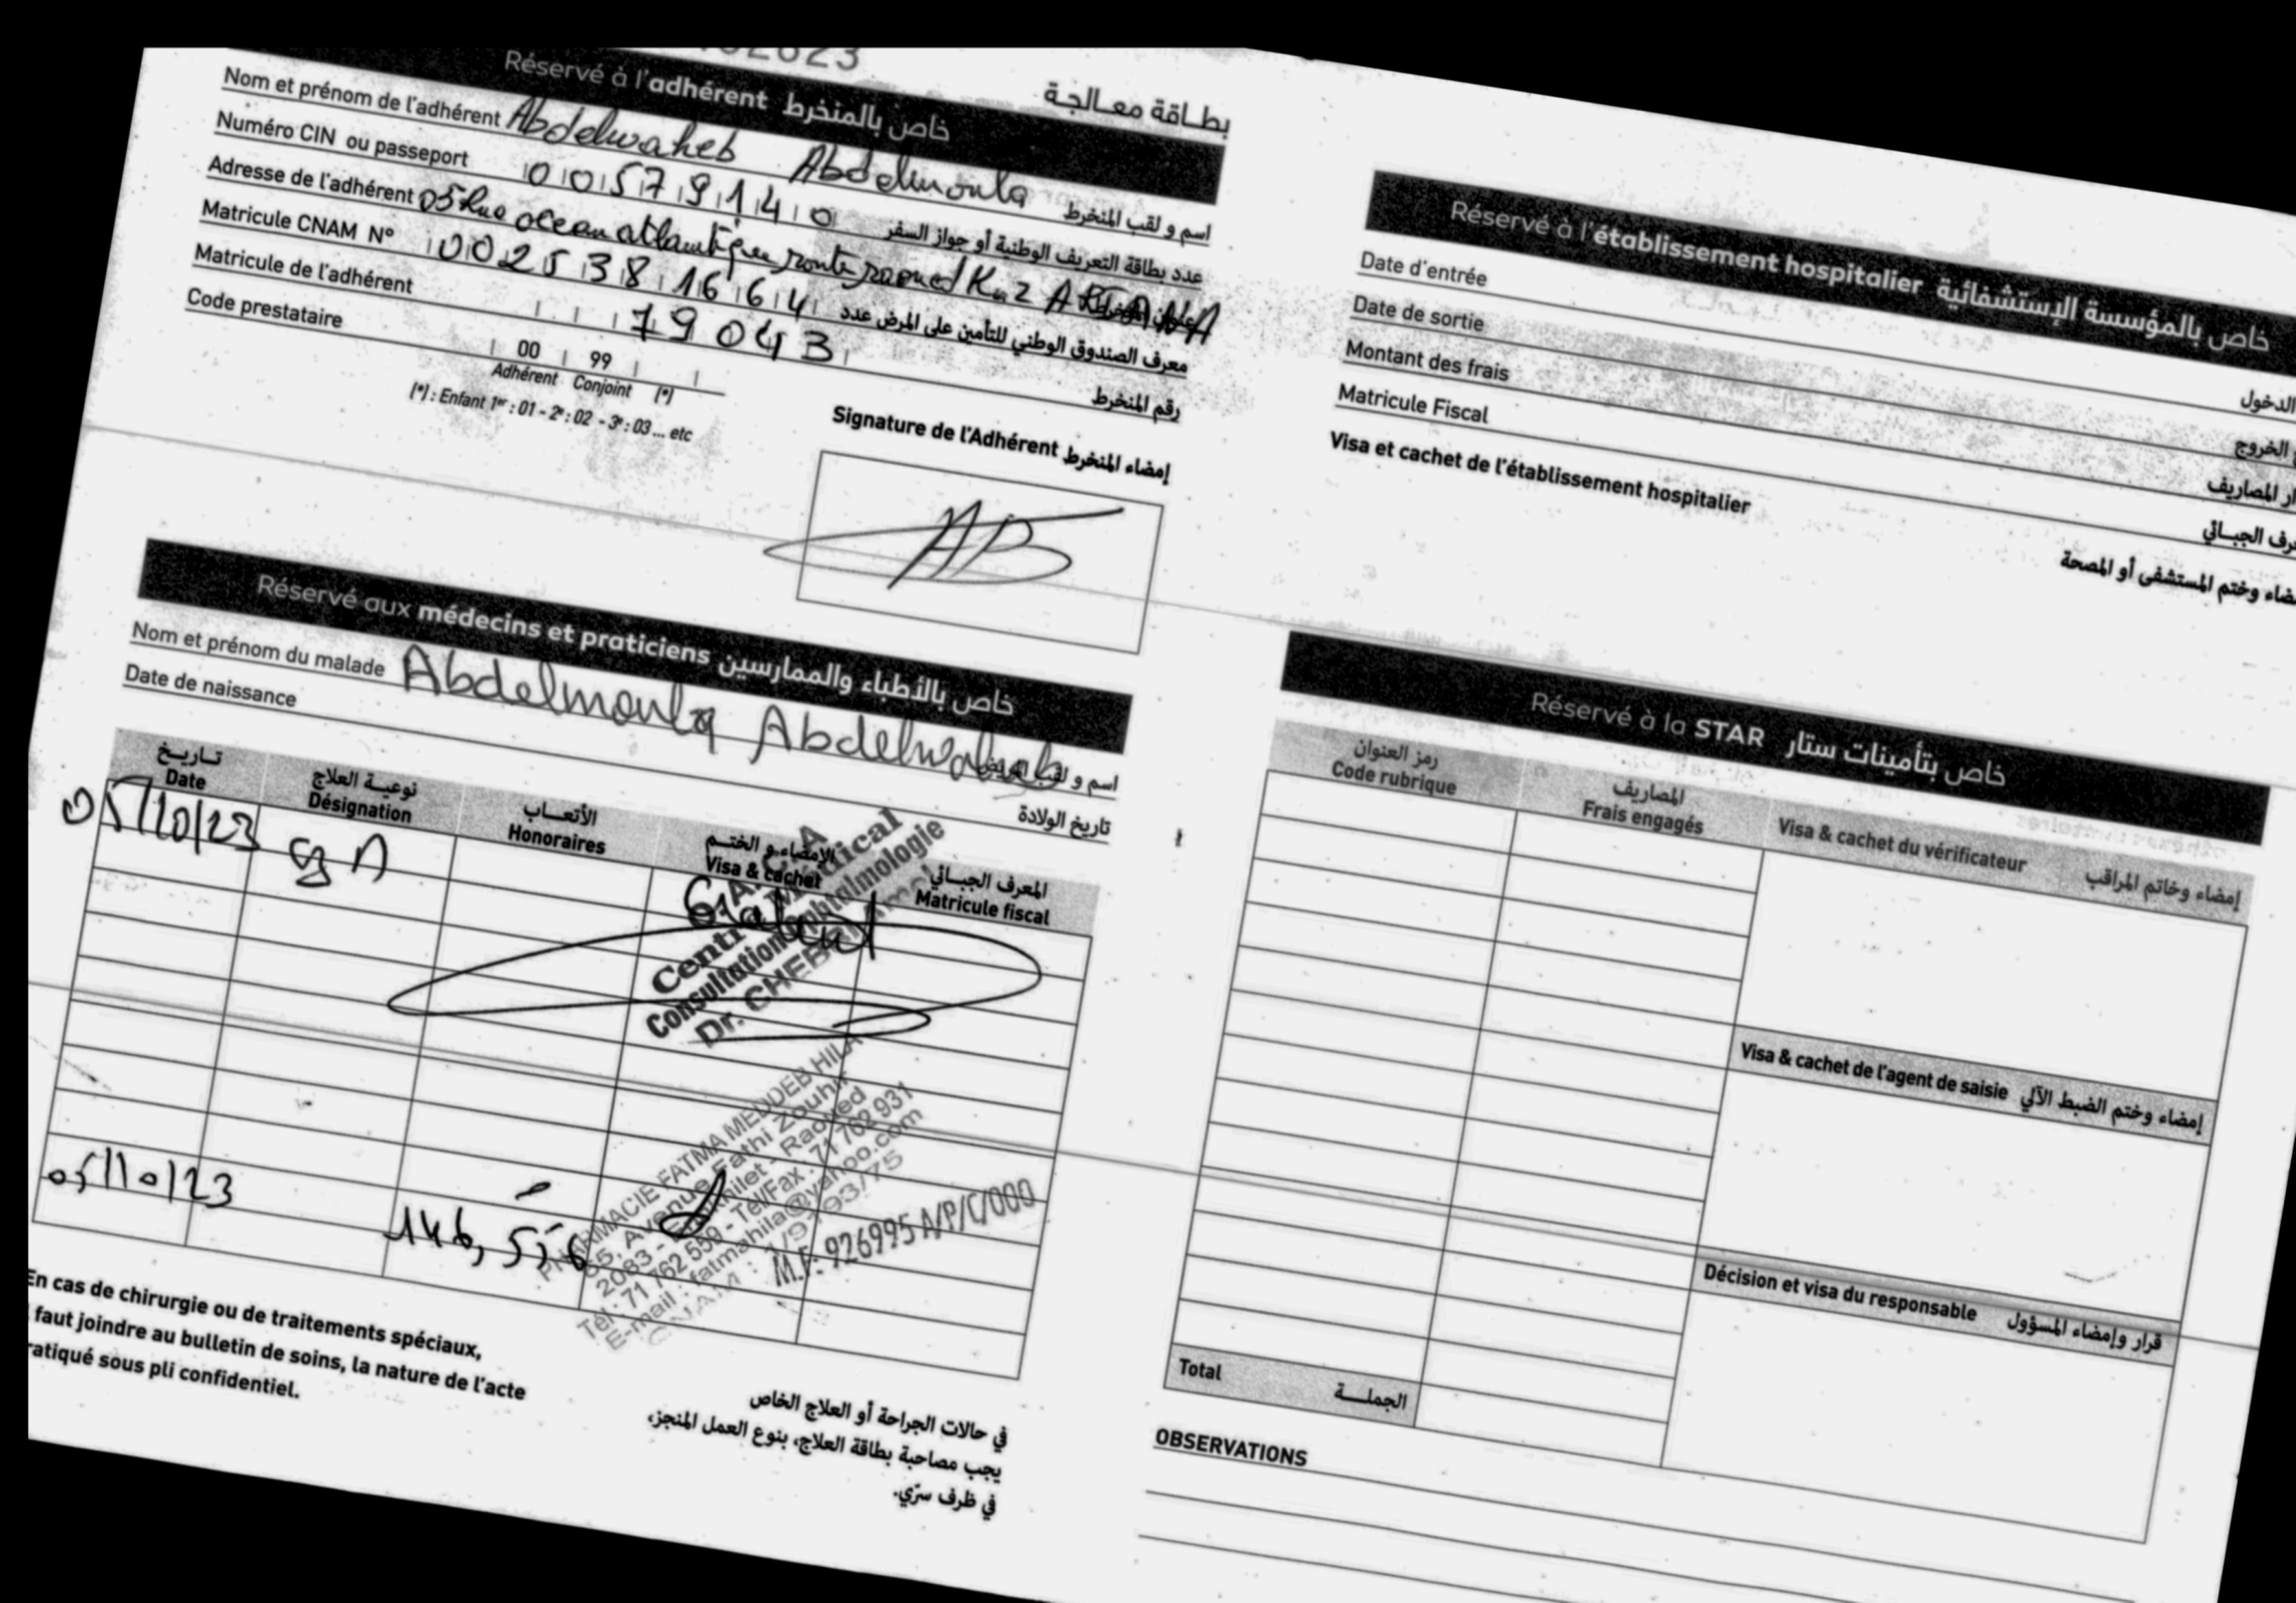 بطـاقة معـالجـة
Réservé à l'adhérent خاص بالمنخرط
Nom et prénom de l'adhérent Abdelwaheb Abdelmoula اسم و لقب المنخرط
Numéro CIN ou passeport 00579140 عدد بطاقة التعريف الوطنية أو جواز السفر
Adresse de l'adhérent 05 Rue ocean atlantique route raoued
Matricule CNAM N° 0025381664 معرف الصندوق الوطني للتأمين على المرض عدد
Matricule de l'adhérent 79043 رقم المنخرط
Code prestataire 00 99
Adhérent Conjoint (*)
(*) : Enfant 1er : 01 - 2e : 02 - 3e : 03 ... etc
Signature de l'Adhérent إمضاء المنخرط
AB
Réservé aux médecins et praticiens خاص بالأطباء والممارسين
Nom et prénom du malade Abdelmoula Abdelwaheb
Date de naissance تاريخ الولادة
تـاريـخ نوعيـة العلاج الأتعـاب الإمضاء و الختـم المعرف الجبـائي
Date Désignation Honoraires Visa & cachet Matricule fiscal
05/10/23
Gratuit
Centre Médical
Consultation Ophtalmologie
PHARMACIE FATMA MEDDEB HILA
65, Avenue Fathi Zouhir
2083 - - Raoued
Tél : 71 762 559 - Tél/Fax : 71 762 931
E-mail : fatmahila@yahoo.com
CNAM : 1/9793/75
M.F: 926995 A/P/C/000
05/10/23 146,516
En cas de chirurgie ou de traitements spéciaux,
faut joindre au bulletin de soins, la nature de l'acte
ratiqué sous pli confidentiel.
في حالات الجراحة أو العلاج الخاص
يجب مصاحبة بطاقة العلاج، بنوع العمل المنجز،
في ظرف سرّي.
Réservé à l'établissement hospitalier خاص بالمؤسسة الإستشفائية
Date d'entrée الدخول
Date de sortie الخروج
Montant des frais المصاريف
Matricule Fiscal الجبـائي
Visa et cachet de l'établissement hospitalier وختم المستشفى أو المصحة
Réservé à la STAR خاص بتأمينات ستار
رمز العنوان المصاريف
Code rubrique Frais engagés Visa & cachet du vérificateur إمضاء وخاتم المراقب
Visa & cachet de l'agent de saisie إمضاء وختم الضبط الآلي
Décision et visa du responsable قرار وإمضاء المسؤول
Total الجملـــة
OBSERVATIONS